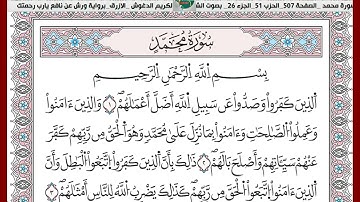 ورة محمد _ الصفحة 507_ الحزب 51_ الجزء 26 _ بصوت الش
كريم الدغوش _ الأزرق _ برواية ورش عن نافع يارب رحمتك
سُورَةُ مُحَمَّدٍ
بِسْمِ اللَّهِ الرَّحْمَٰنِ الرَّحِيمِ
الَّذِينَ كَفَرُوا وَصَدُّوا عَن سَبِيلِ اللَّهِ أَضَلَّ أَعْمَٰلَهُمْ ١ وَالَّذِينَ ءَامَنُوا
وَعَمِلُوا الصَّٰلِحَٰتِ وَءَامَنُوا بِمَا نُزِّلَ عَلَىٰ مُحَمَّدٍ وَهُوَ الْحَقُّ مِن رَّبِّهِمْ كَفَّرَ
عَنْهُمْ سَيِّـَٔاتِهِمْ وَأَصْلَحَ بَالَهُمْ ٢ ذَٰلِكَ بِأَنَّ الَّذِينَ كَفَرُوا اتَّبَعُوا الْبَٰطِلَ وَأَنَّ
الَّذِينَ ءَامَنُوا اتَّبَعُوا الْحَقَّ مِن رَّبِّهِمْ كَذَٰلِكَ يَضْرِبُ اللَّهُ لِلنَّاسِ أَمْثَٰلَهُمْ ٣